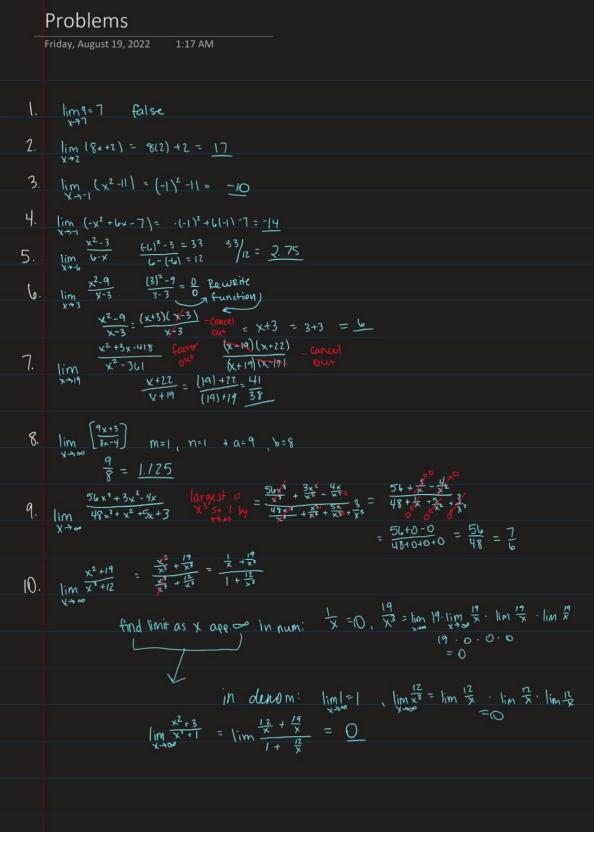 Problems
Friday, August 19, 2022 1:17 AM
1. lim x→7 9 = 7 false
2. lim x→2 (8x+2) = 8(2)+2 = 17
3. lim x→-1 (x²-11) = (-1)²-11 = -10
4. lim x→-1 (-x²+6x-7) = -(-1)²+6(-1)-7 = -14
5. lim x→-6 x²-3/6-x (-6)²-3 = 33/6-(-6) = 12 33/12 = 2.75
6. lim x→3 x²-9/x-3 (3)²-9/3-3 = 0/0 Rewrite function
x²-9/x-3 = (x+3)(x-3)/x-3 -cancel out = x+3 = 3+3 = 6
7. lim x→19 x²+3x-418/x²-361 factor out (x-19)(x+22)/(x+19)(x-19) -cancel out
x+22/x+19 = (19)+22/(19)+19 = 41/38
8. lim x→∞ [9x+3/8x-4] m=1, n=1 + a=9, b=8
9/8 = 1.125
9. lim x→∞ 56x³+3x²-4x/48x³+x²+5x+3 largest is x³ so % by that = 56x³/x³ + 3x²/x³ - 4x/x³ / 48x³/x³ + x²/x³ + 5x/x³ + 3/x³ = 56 + 3/x - 4/x² / 48 + 1/x + 5/x² + 3/x³
= 56+0-0/48+0+0+0 = 56/48 = 7/6
10. lim x→∞ x²+19/x³+12 = x²/x³ + 19/x³ / x³/x³ + 12/x³ = 1/x + 19/x³ / 1 + 12/x³
find limit as x app. ∞ in num: 1/x = 0, 19/x³ = lim x→∞ 19 · lim x→∞ 19/x · lim 19/x · lim 19/x
19 · 0 · 0 · 0
= 0
in denom: lim 1 = 1, lim x→∞ 12/x³ = lim 12/x · lim 12/x · lim 12/x
= 0
lim x→∞ x²+3/x³+1 = lim 12/x + 19/x / 1 + 12/x = 0